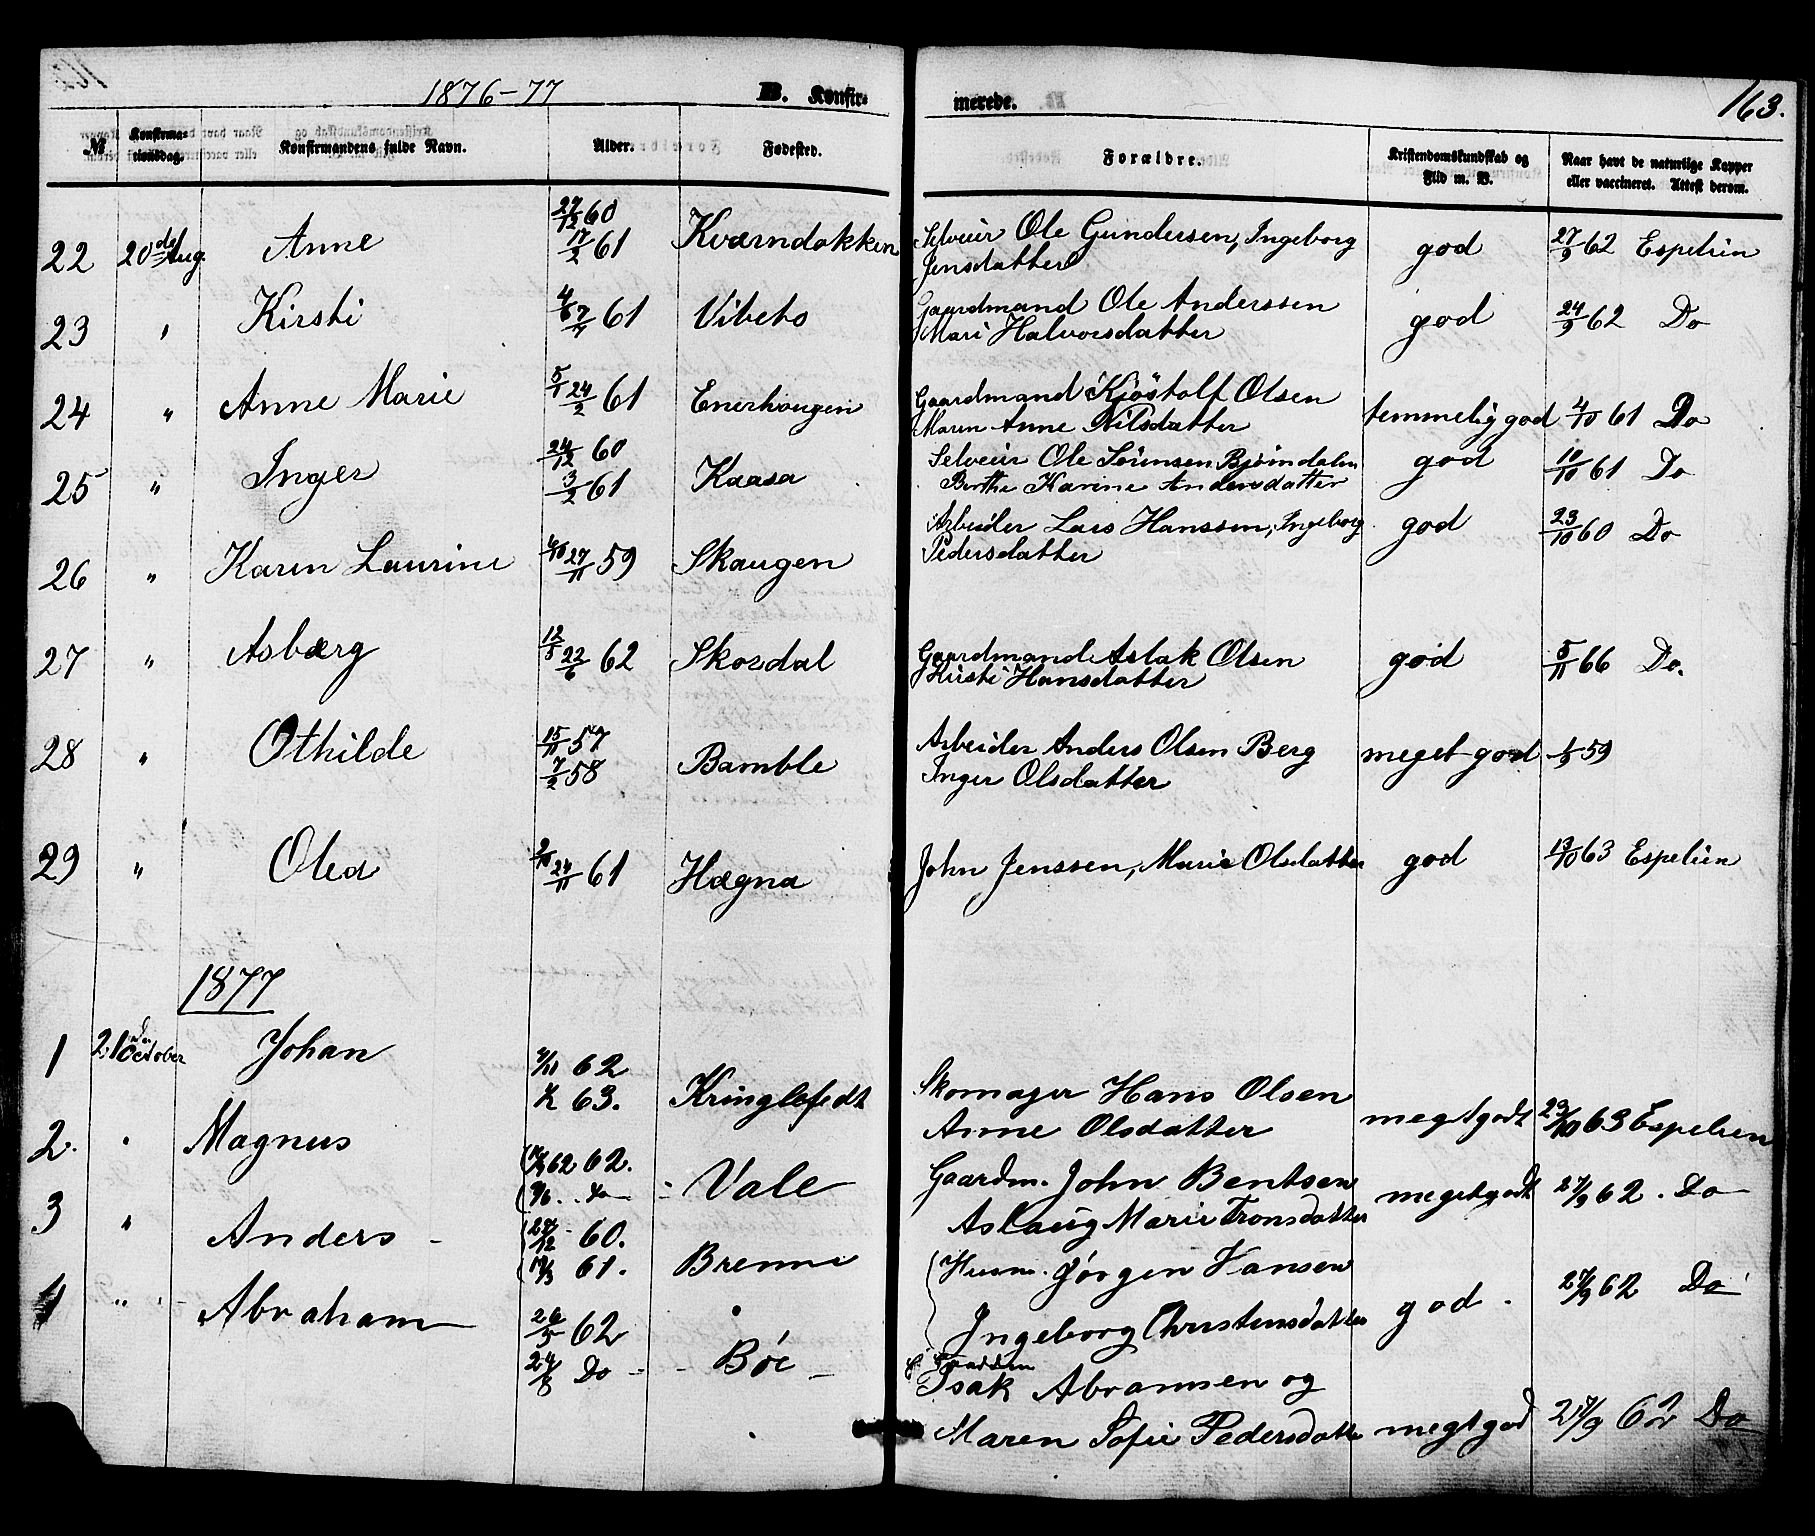 1876-77 B. Konfir- merede. 163.
№ Konfirmationsdag. Konfirmandens fulde Navn. Alder. Fødested. Forældre. Kristendomskundskab og Flid m. V. Naar havt de naturlige Kopper eller vaccineret. Attest derom.
22 20de Aug. Anne 27/12 60 17/2 61 Kværndokken Selveier Ole Gundersen, Ingeborg Jensdatter god 27/9 62 Espelien
23 " Kirsti 4/6 7/7 61 Vibeto Gaardmand Ole Anderssen Mari Halvorsdatter god 24/9 62 Do
24 " Anne Marie 5/1 24/2 61 Enerhougen Gaardmand Kjøstolf Olsen Maren Anne Nilsdatter temmelig god 4/10 61 Do
25 " Inger 24/12 60 3/2 61 Kaasa Selveier Ole Sørensen Bjørndalen Berthe Karine Andersdatter god 10/10 61 Do
26 " Karen Laurine 4/10 27/11 59 Skaugen Arbeider Lars Hanssen, Ingeborg Pedersdatter god 23/10 60 Do
27 " Asbærg 12/5 22/6 62 Skordal Gaardmand Aslak Olsen Kirsti Hansdatter god 5/11 66 Do.
28 " Othilde 15/11 57 7/2 58 Bamble Arbeider Anders Olsen Berg Inger Olsdatter meget god 1/9 59
29 " Olea 2/10 24/11 61 Hægna John Jenssen, Marie Olsdatter god 13/10 63 Espelien
1877
1 21de October Johan 4/11 62 63. Kringlefedt Skomager Hans Olsen Anne Olsdatter megetgodt 29/10 63 Espelien
2. " Magnus 62. 9/6 Do Vale Gaardm. John Bentsen Aslaug Marie Tronsdatter megetgodt 27/9 62. Do
3 " Anders 27/12 60. 19/3 61. Brenne Husm. Jørgen Hansen Ingeborg Christensdatter god. 27/9 62 Do
4 " Abraham 26/5 62 24/8 Do Bøe Gaardm Isak Abramsen og
Maren Sofie Pedersdatter megetgod 27/9 62 Do